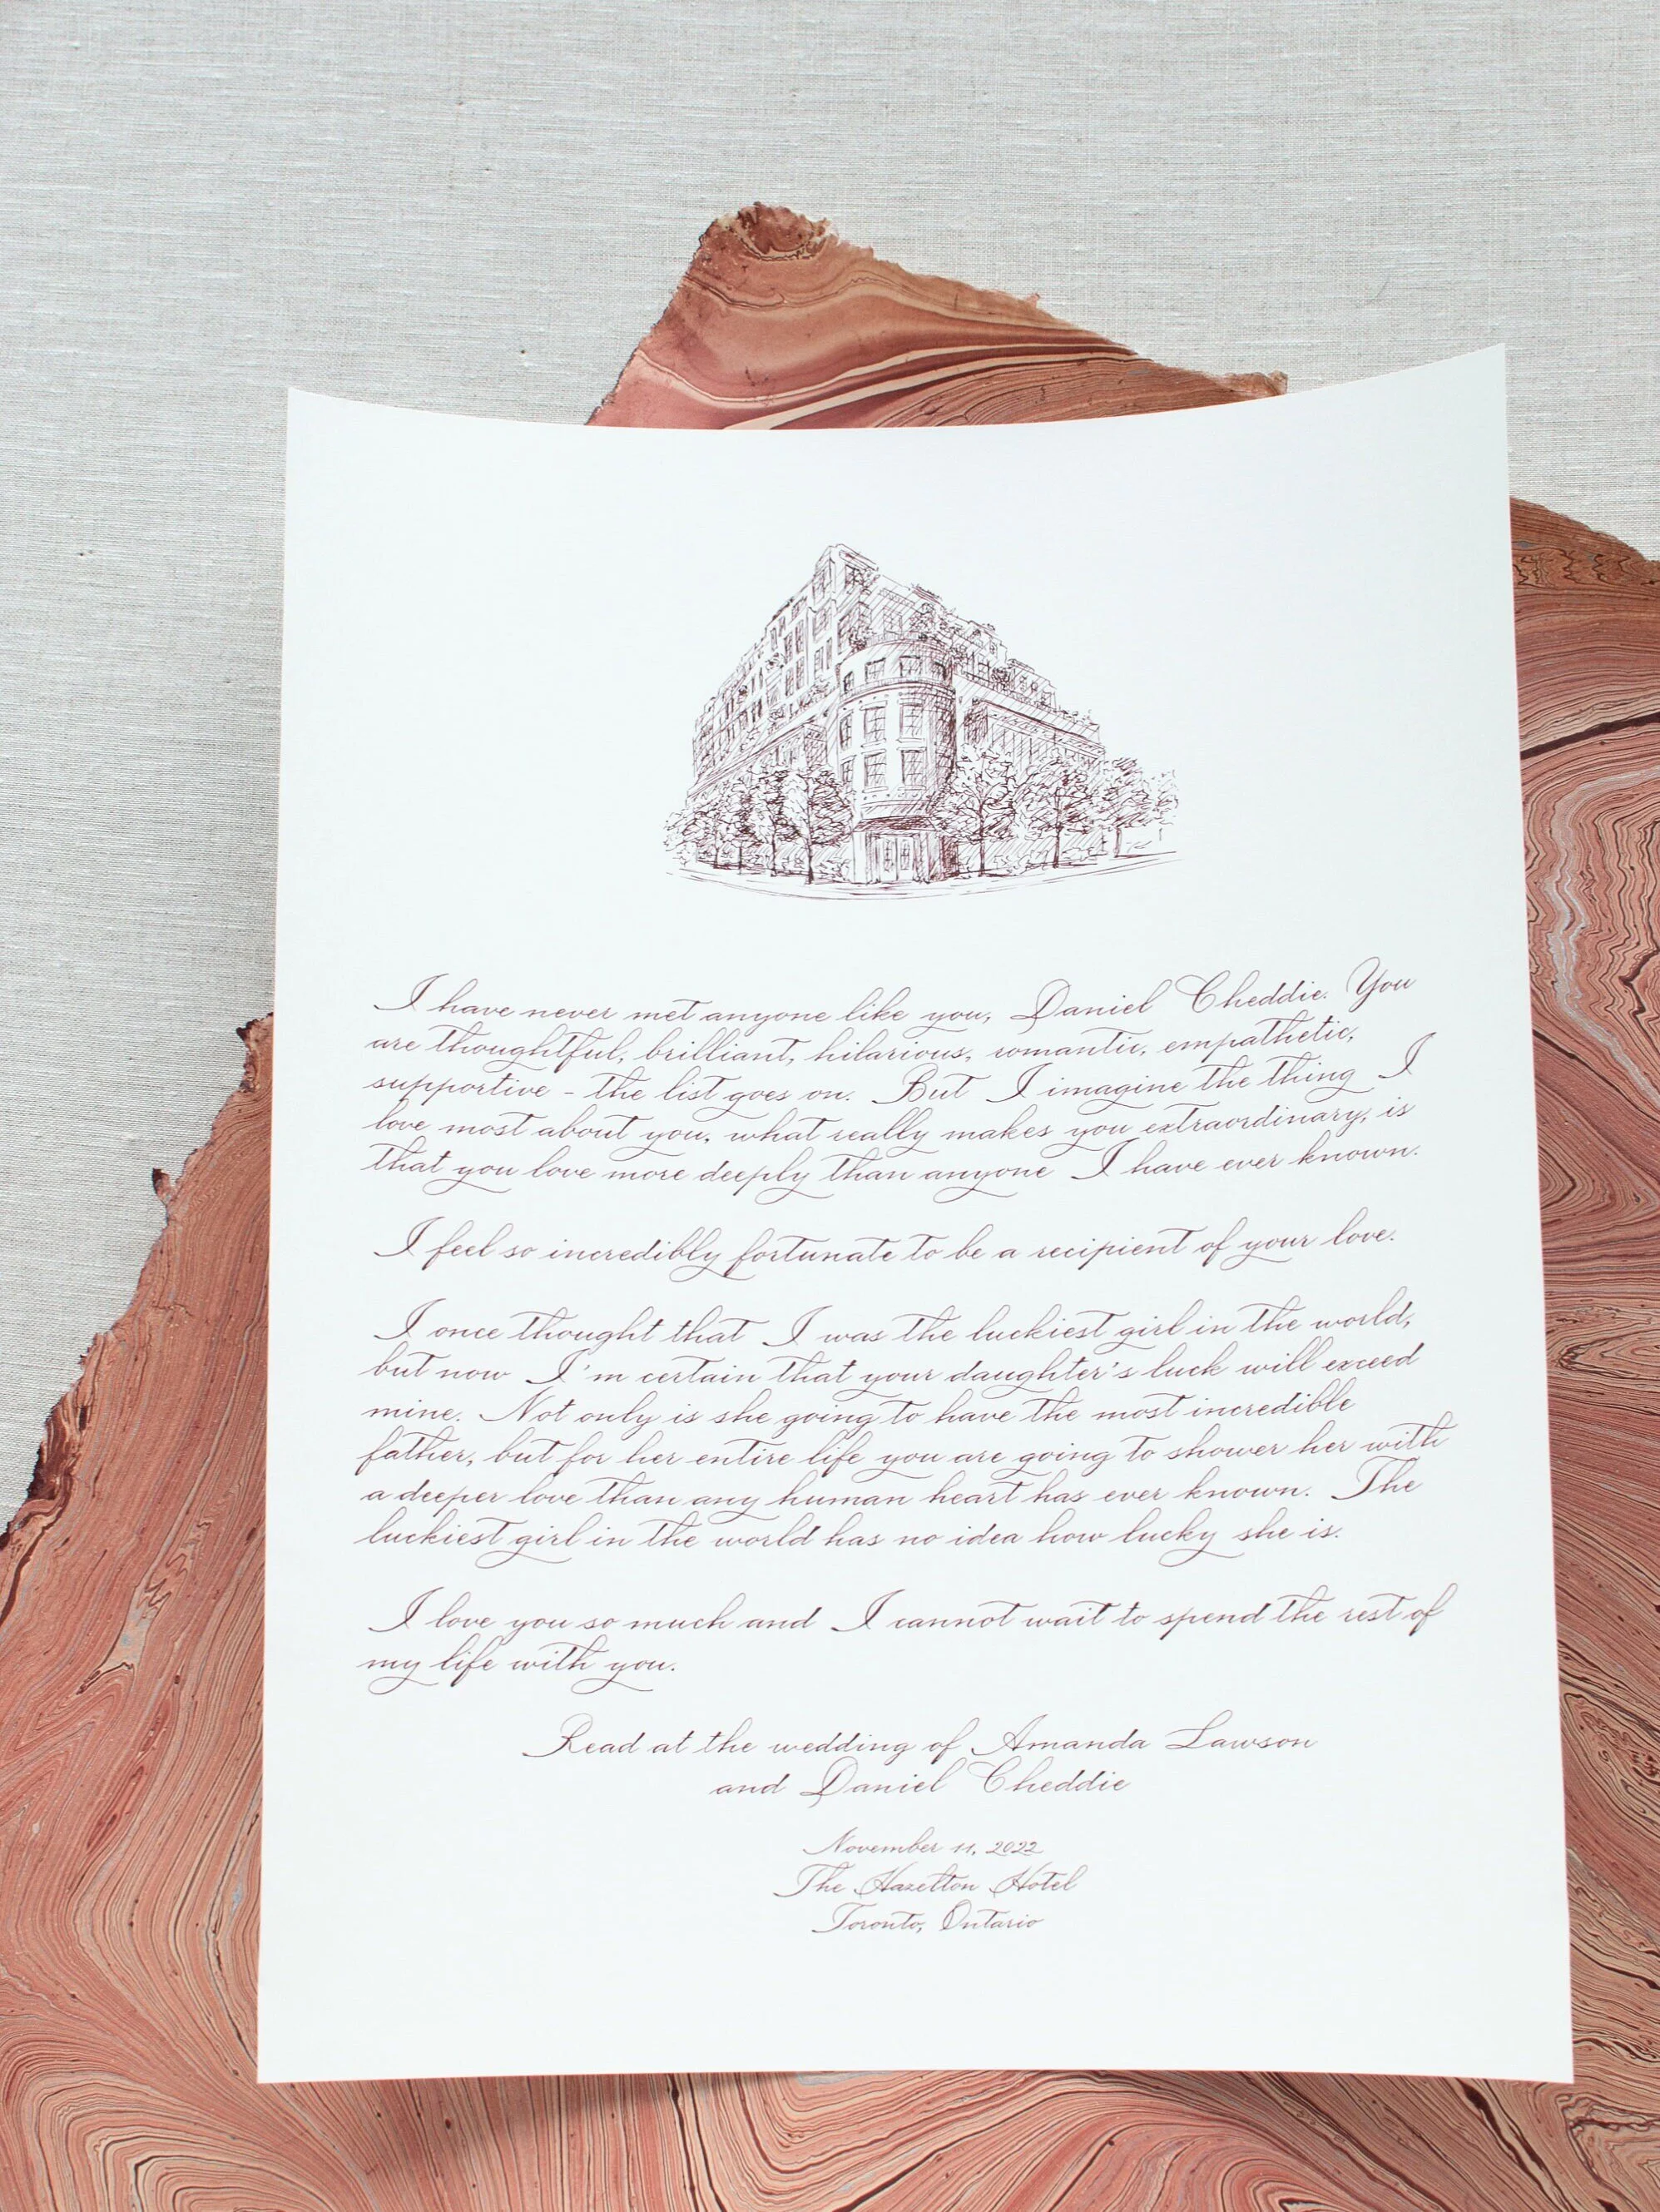 I have never met anyone like you, Daniel Cheddie. You
are thoughtful, brilliant, hilarious, romantic, empathetic,
supportive - the list goes on. But I imagine the thing I
love most about you, what really makes you extraordinary, is
that you love more deeply than anyone I have ever known.
I feel so incredibly fortunate to be a recipient of your love.
I once thought that I was the luckiest girl in the world,
but now I'm certain that your daughter's luck will exceed
mine. Not only is she going to have the most incredible
father, but for her entire life you are going to shower her with
a deeper love than any human heart has ever known. The
luckiest girl in the world has no idea how lucky she is.
I love you so much and I cannot wait to spend the rest of
my life with you.
Read at the wedding of Amanda Lawson
and Daniel Cheddie
November 11, 2022
The Hazelton Hotel
Toronto, Ontario